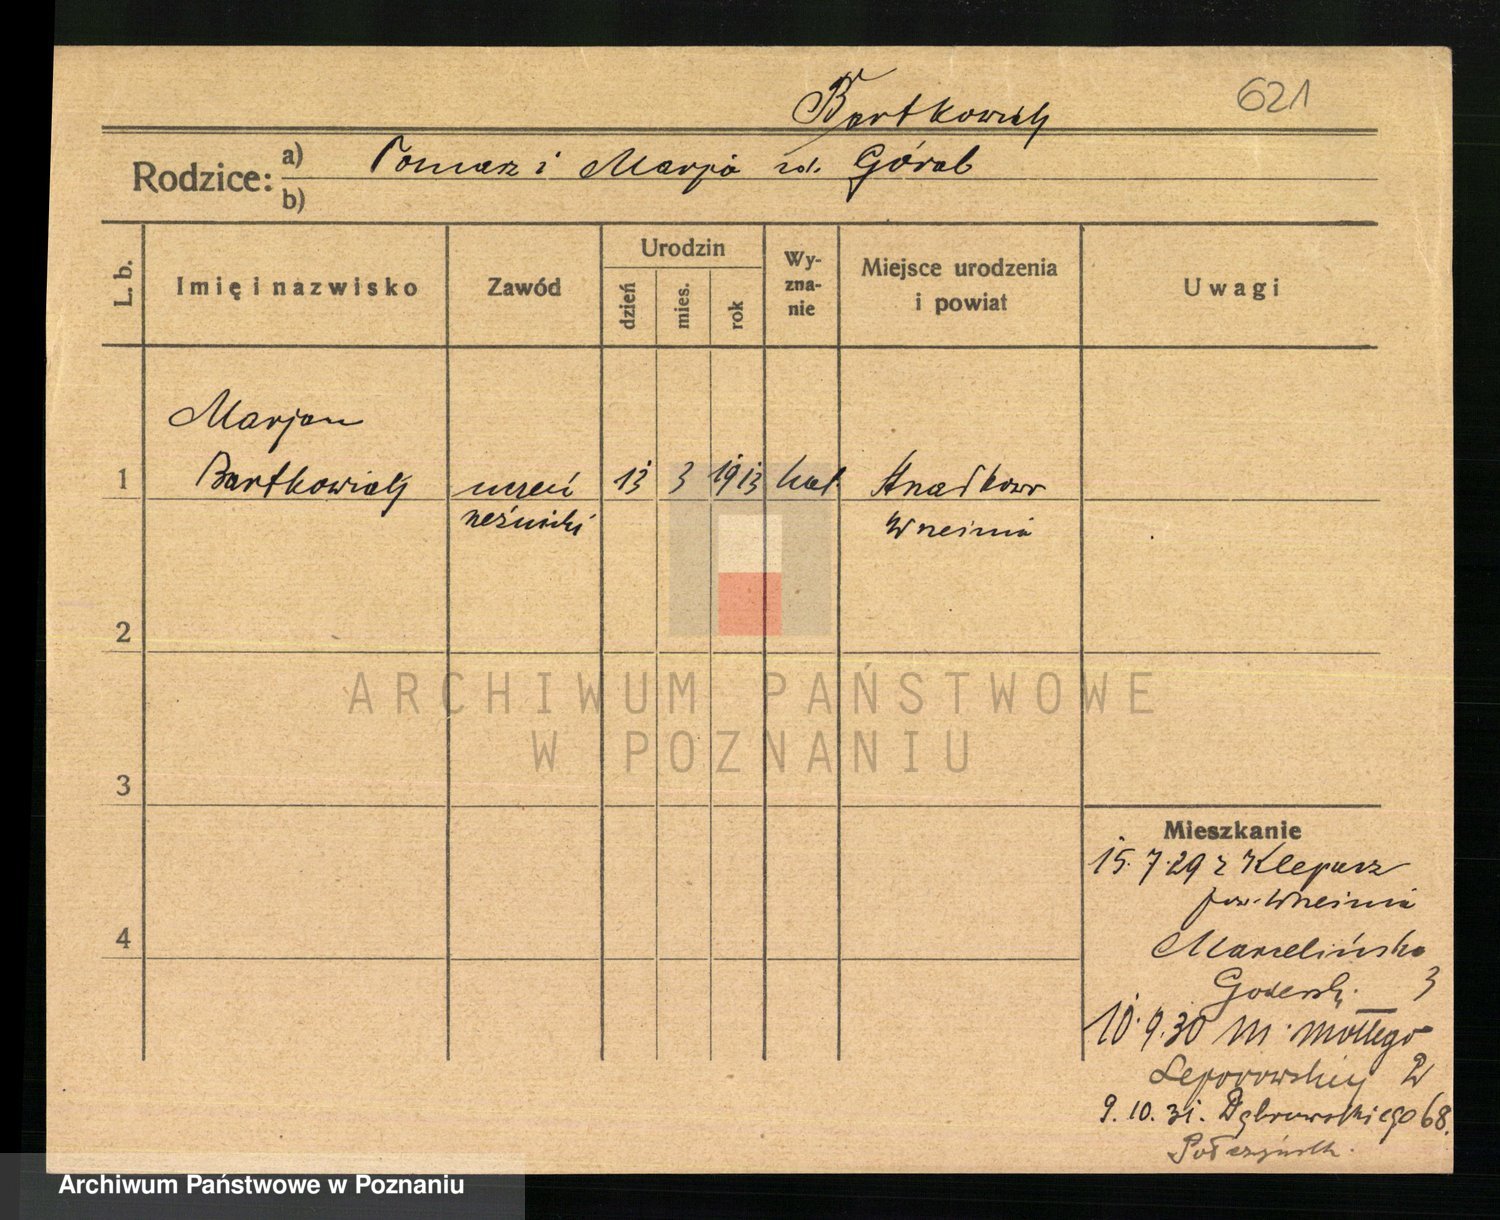 621
Bartkowiak
Rodzice: a) Tomasz i Marja zd. Góral
b)
L. b. Imię i nazwisko Zawód Urodzin dzień mies. rok Wy-zna-nie Miejsce urodzenia i powiat Uwagi
Marjan
1 Bartkowiak uczeń 13 3 1913 kat.
rzeźnicki Września
2
ARCHIWUM PAŃSTWOWE
W POZNANIU
3
Mieszkanie
15.7.29 z Kleparz
pow. Września
4 Marcelińska
3
10.9.30 m. Mottego
Leporowskiej 2
9.10.31. Dąbrowskiego 68.
Archiwum Państwowe w Poznaniu